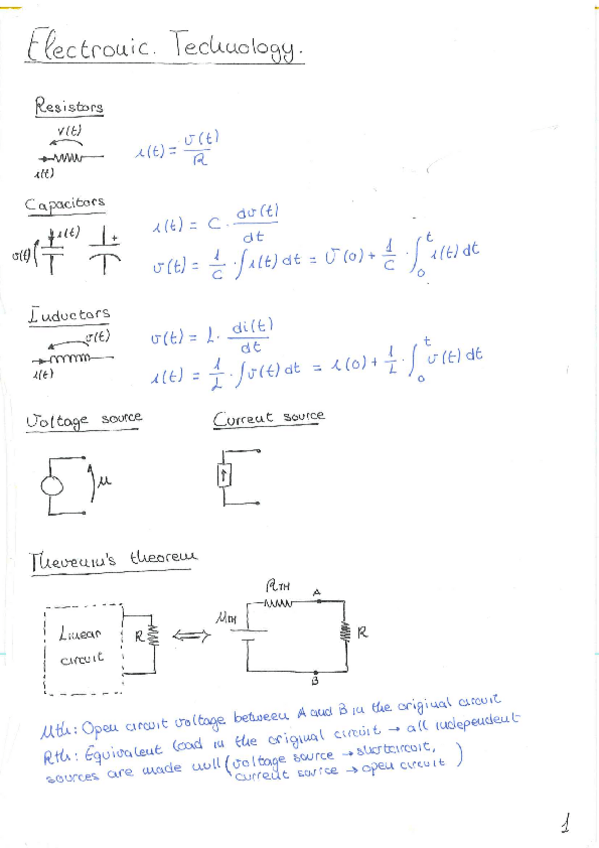 Electronic. Technology.
Resistors
v(t)
i(t)
i(t) = v(t)/R
Capacitors
i(t)
v(t)
+
i(t) = C · dv(t)/dt
v(t) = 1/C · ∫i(t) dt = V(0) + 1/C · ∫₀ᵗ i(t) dt
Inductors
v(t)
i(t)
v(t) = L · di(t)/dt
i(t) = 1/L · ∫v(t) dt = i(0) + 1/L · ∫₀ᵗ v(t) dt
Voltage source
Current source
u
↑
Thevenin's theorem
Linear
circuit
R
⟺
RTH
A
UTH
R
B
Uth: Open circuit voltage between A and B in the original circuit
Rth: Equivalent load in the original circuit → all independent
sources are made null (voltage source → shortcircuit,
current source → open circuit)
1